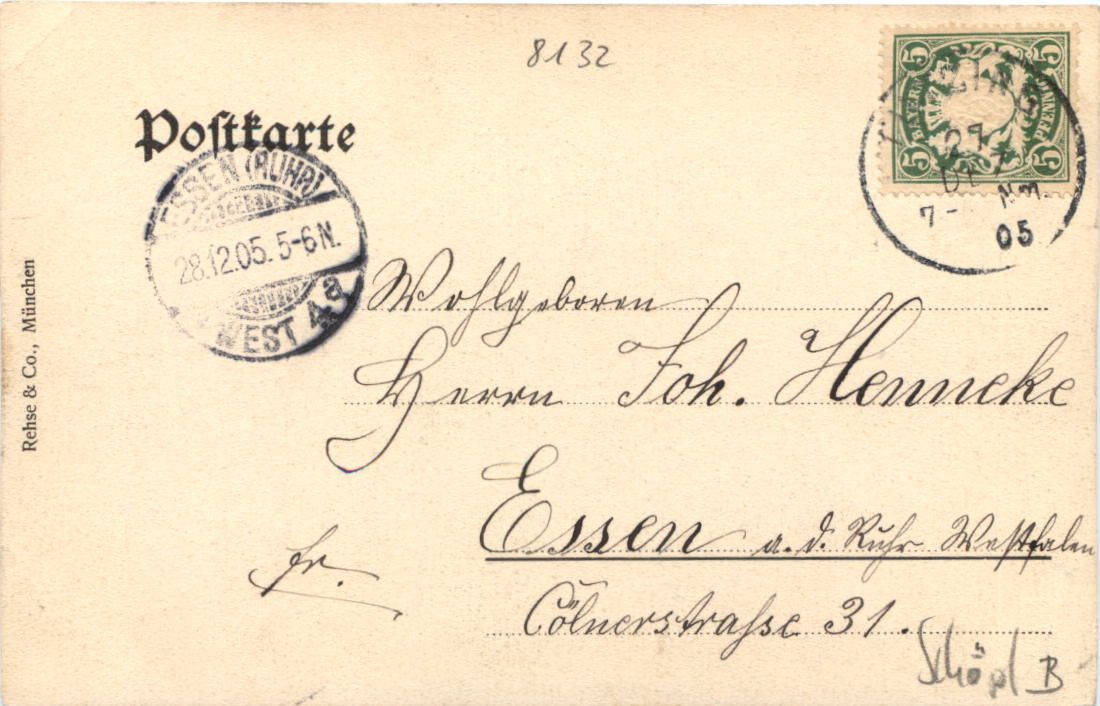 8132
Postkarte
BAYERN 5 5 5 5 PFENNIG
27
DEZ
7- Nm.
05
ESSEN (RUHR)
28.12.05. 5-6 N.
* WEST 4a
Rehse & Co., München
Wohlgeboren
Herrn Joh. Henneke
Essen a. d. Ruhr Westfalen
fr.
Cölnerstrasse 31.
B